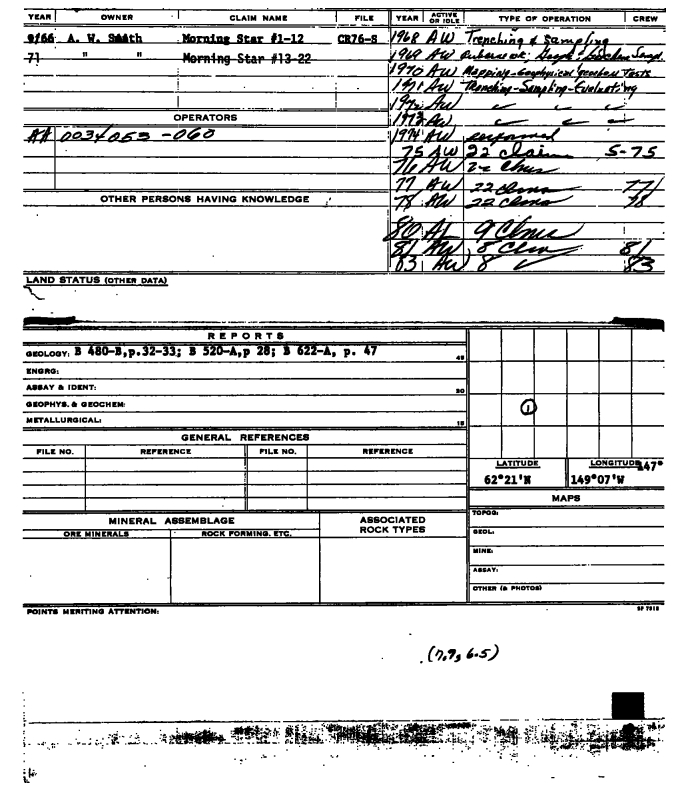 YEAR OWNER CLAIM NAME FILE YEAR ACTIVE OR IDLE TYPE OF OPERATION CREW
9/66 A. W. Smith Morning Star #1-12 CR76-S 1968 AW Trenching & Sampling
71 " " Morning Star #13-22 1969 AW
1970 AW Mapping-Geophysical Geochem Tests
1971 AW Trenching-Sampling-Evaluating
1972 AW ✓ ✓ ✓
OPERATORS 1973 AW ✓ ✓
AA 0034053-060 1974 AW
75 AW 22 claims S-75
76 AW 22 Clms
77 AW 22 Clms 77
OTHER PERSONS HAVING KNOWLEDGE 78 AW 22 Clms 78
80 AL 9 Clms
81 AW 8 Clms 81
83 AW 8 ✓ 83
LAND STATUS (OTHER DATA)
REPORTS
GEOLOGY: B 480-B,p.32-33; B 520-A,p 28; B 622-A, p. 47 45
ENGRG:
ASSAY & IDENT: 30
GEOPHYS. & GEOCHEM: 1
METALLURGICAL: 15
GENERAL REFERENCES
FILE NO. REFERENCE FILE NO. REFERENCE
LATITUDE LONGITUDE 147°
62°21'N 149°07'W
MAPS
MINERAL ASSEMBLAGE ASSOCIATED ROCK TYPES TOPOG:
ORE MINERALS ROCK FORMING, ETC. GEOL:
MINE:
ASSAY:
OTHER (& PHOTOS)
POINTS MERITING ATTENTION:
(7.9, 6.5)